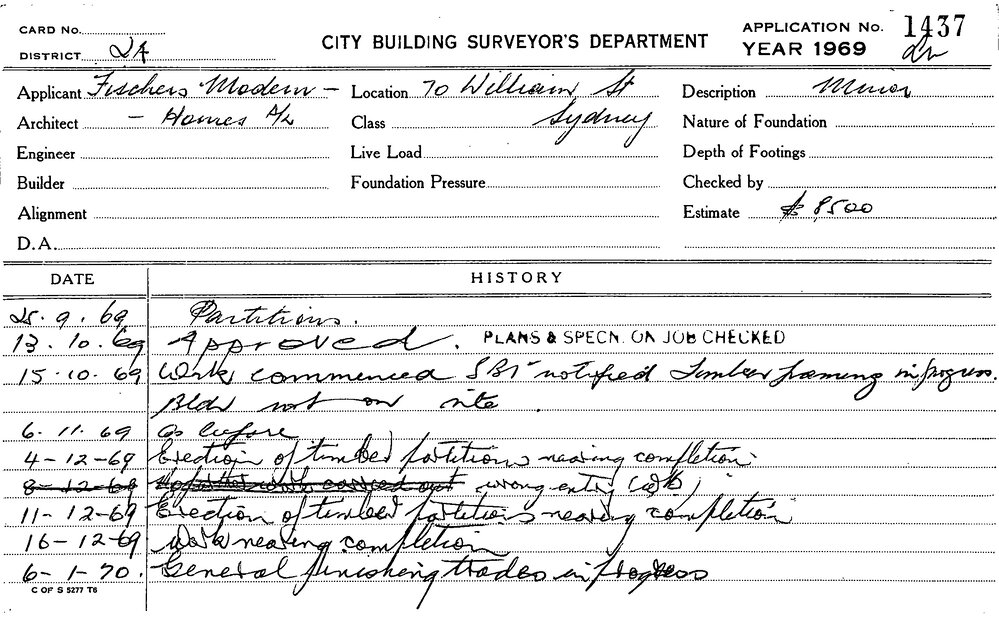 CARD No.
DISTRICT 2A
CITY BUILDING SURVEYOR'S DEPARTMENT
APPLICATION No. 1437
YEAR 1969
Applicant Fischers Modern - Location 70 William St Description Minor
Architect - Homes P/L Class Sydney Nature of Foundation
Engineer Live Load Depth of Footings
Builder Foundation Pressure Checked by
Alignment Estimate $ 8500
D.A.
DATE HISTORY
25.9.69 Partitions.
13.10.69 Approved. PLANS & SPECN. ON JOB CHECKED
15.10.69 Work commenced notified Timber framing in progress.
Bldr not on site.
6.11.69 As before
4-12-69 Erection of timber partitions nearing completion
8-12-69 No further work carried out wrong entry
11-12-69 Erection of timber partitions nearing completion
16-12-69 Work nearing completion
6-1-70. General finishing trades in progress
C OF S 5277 T6